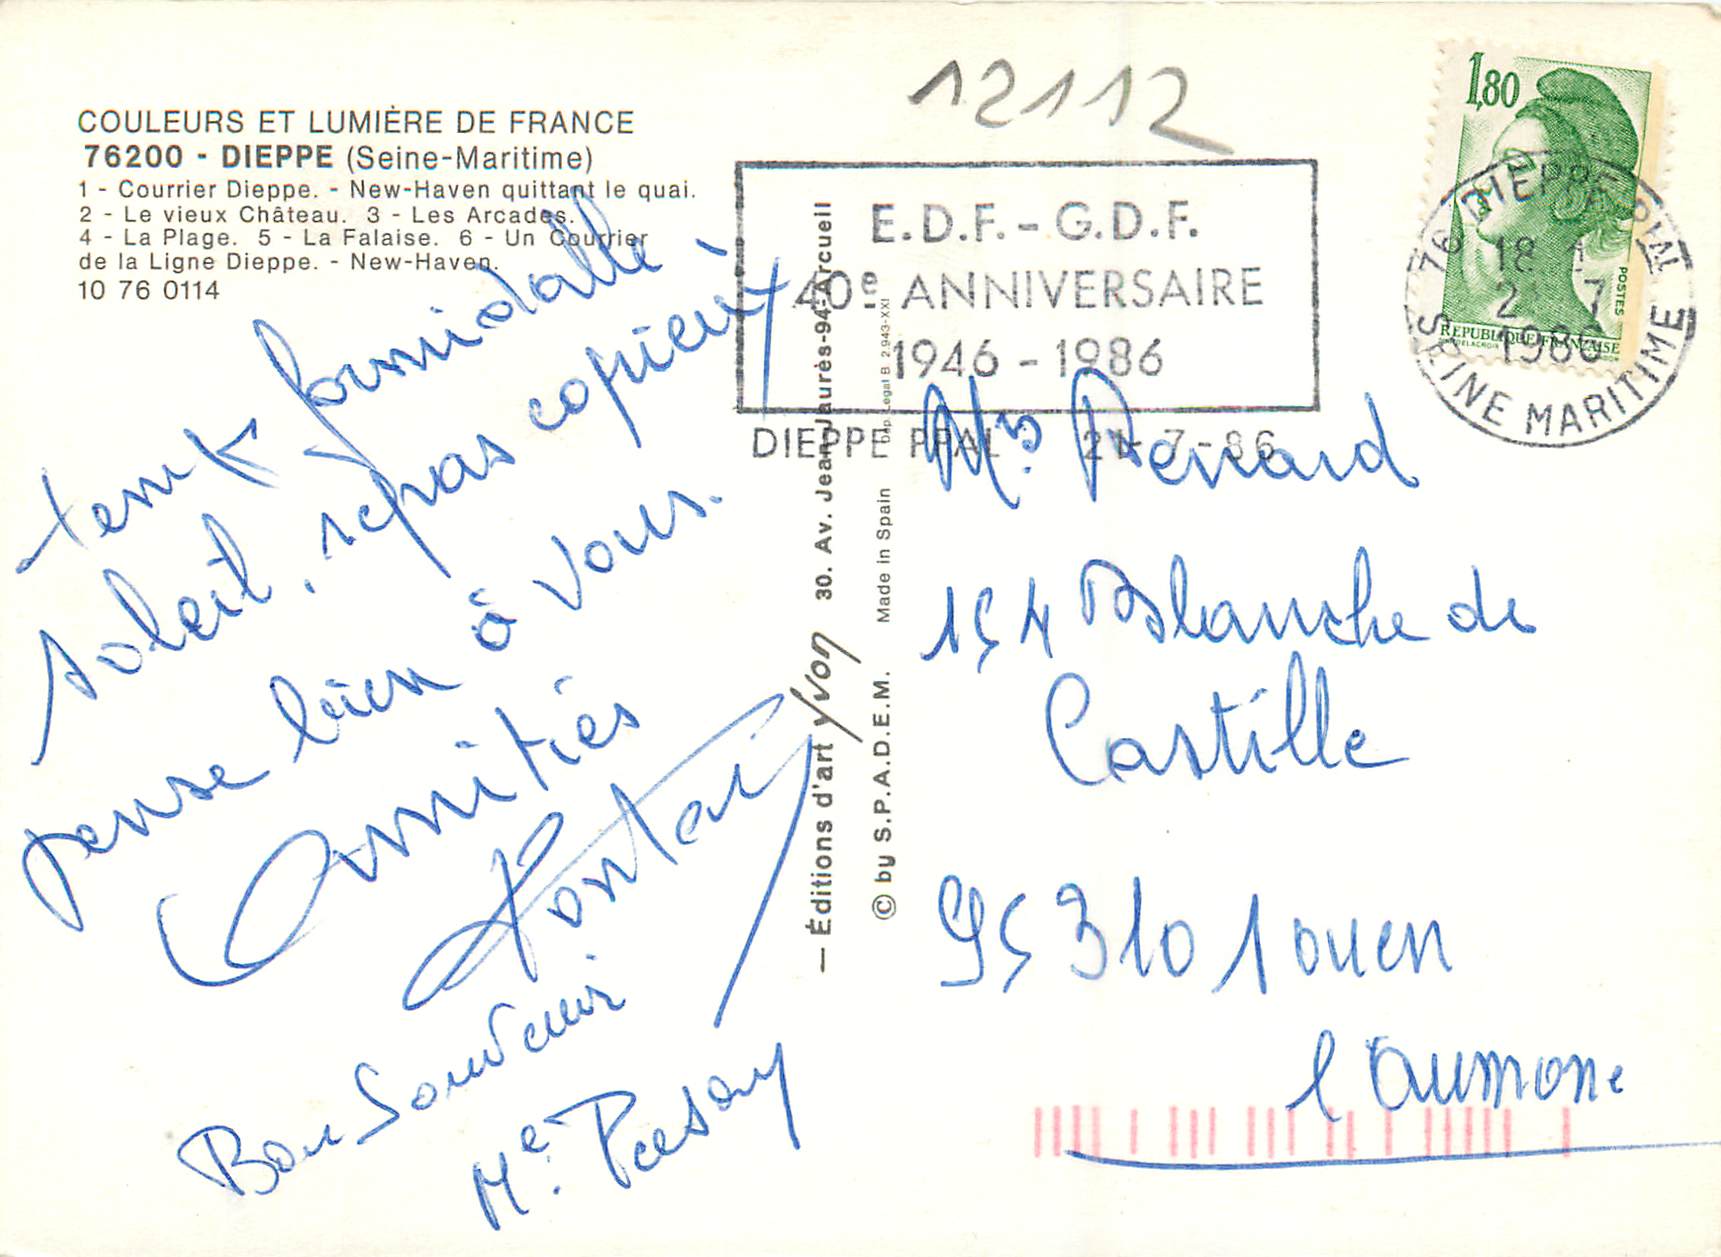 12112
COULEURS ET LUMIÈRE DE FRANCE
76200 - DIEPPE (Seine-Maritime)
1 - Courrier Dieppe. - New-Haven quittant le quai.
2 - Le vieux Château. 3 - Les Arcades.
4 - La Plage. 5 - La Falaise. 6 - Un Courrier
de la Ligne Dieppe. - New-Haven.
10 76 0114
temps formidable
soleil, repas copieux
pense bien à vous.
Amitiés
Bon Souvenir
Me.
— Éditions d'art yvon 30. Av. Jean-Jaurès-94-Arcueil
© by S.P.A.D.E.M. Made in Spain Dép. Légal B. 2.943-XXI
E.D.F. - G.D.F.
40e ANNIVERSAIRE
1946 - 1986
DIEPPE PPAL 21-7-86
1,80
POSTES
REPUBLIQUE FRANÇAISE
76 DIEPPE PPAL
18 H
21 7
1986
SEINE MARITIME
154 Blanche de
Castille
95310 S ouen
l'Aumone